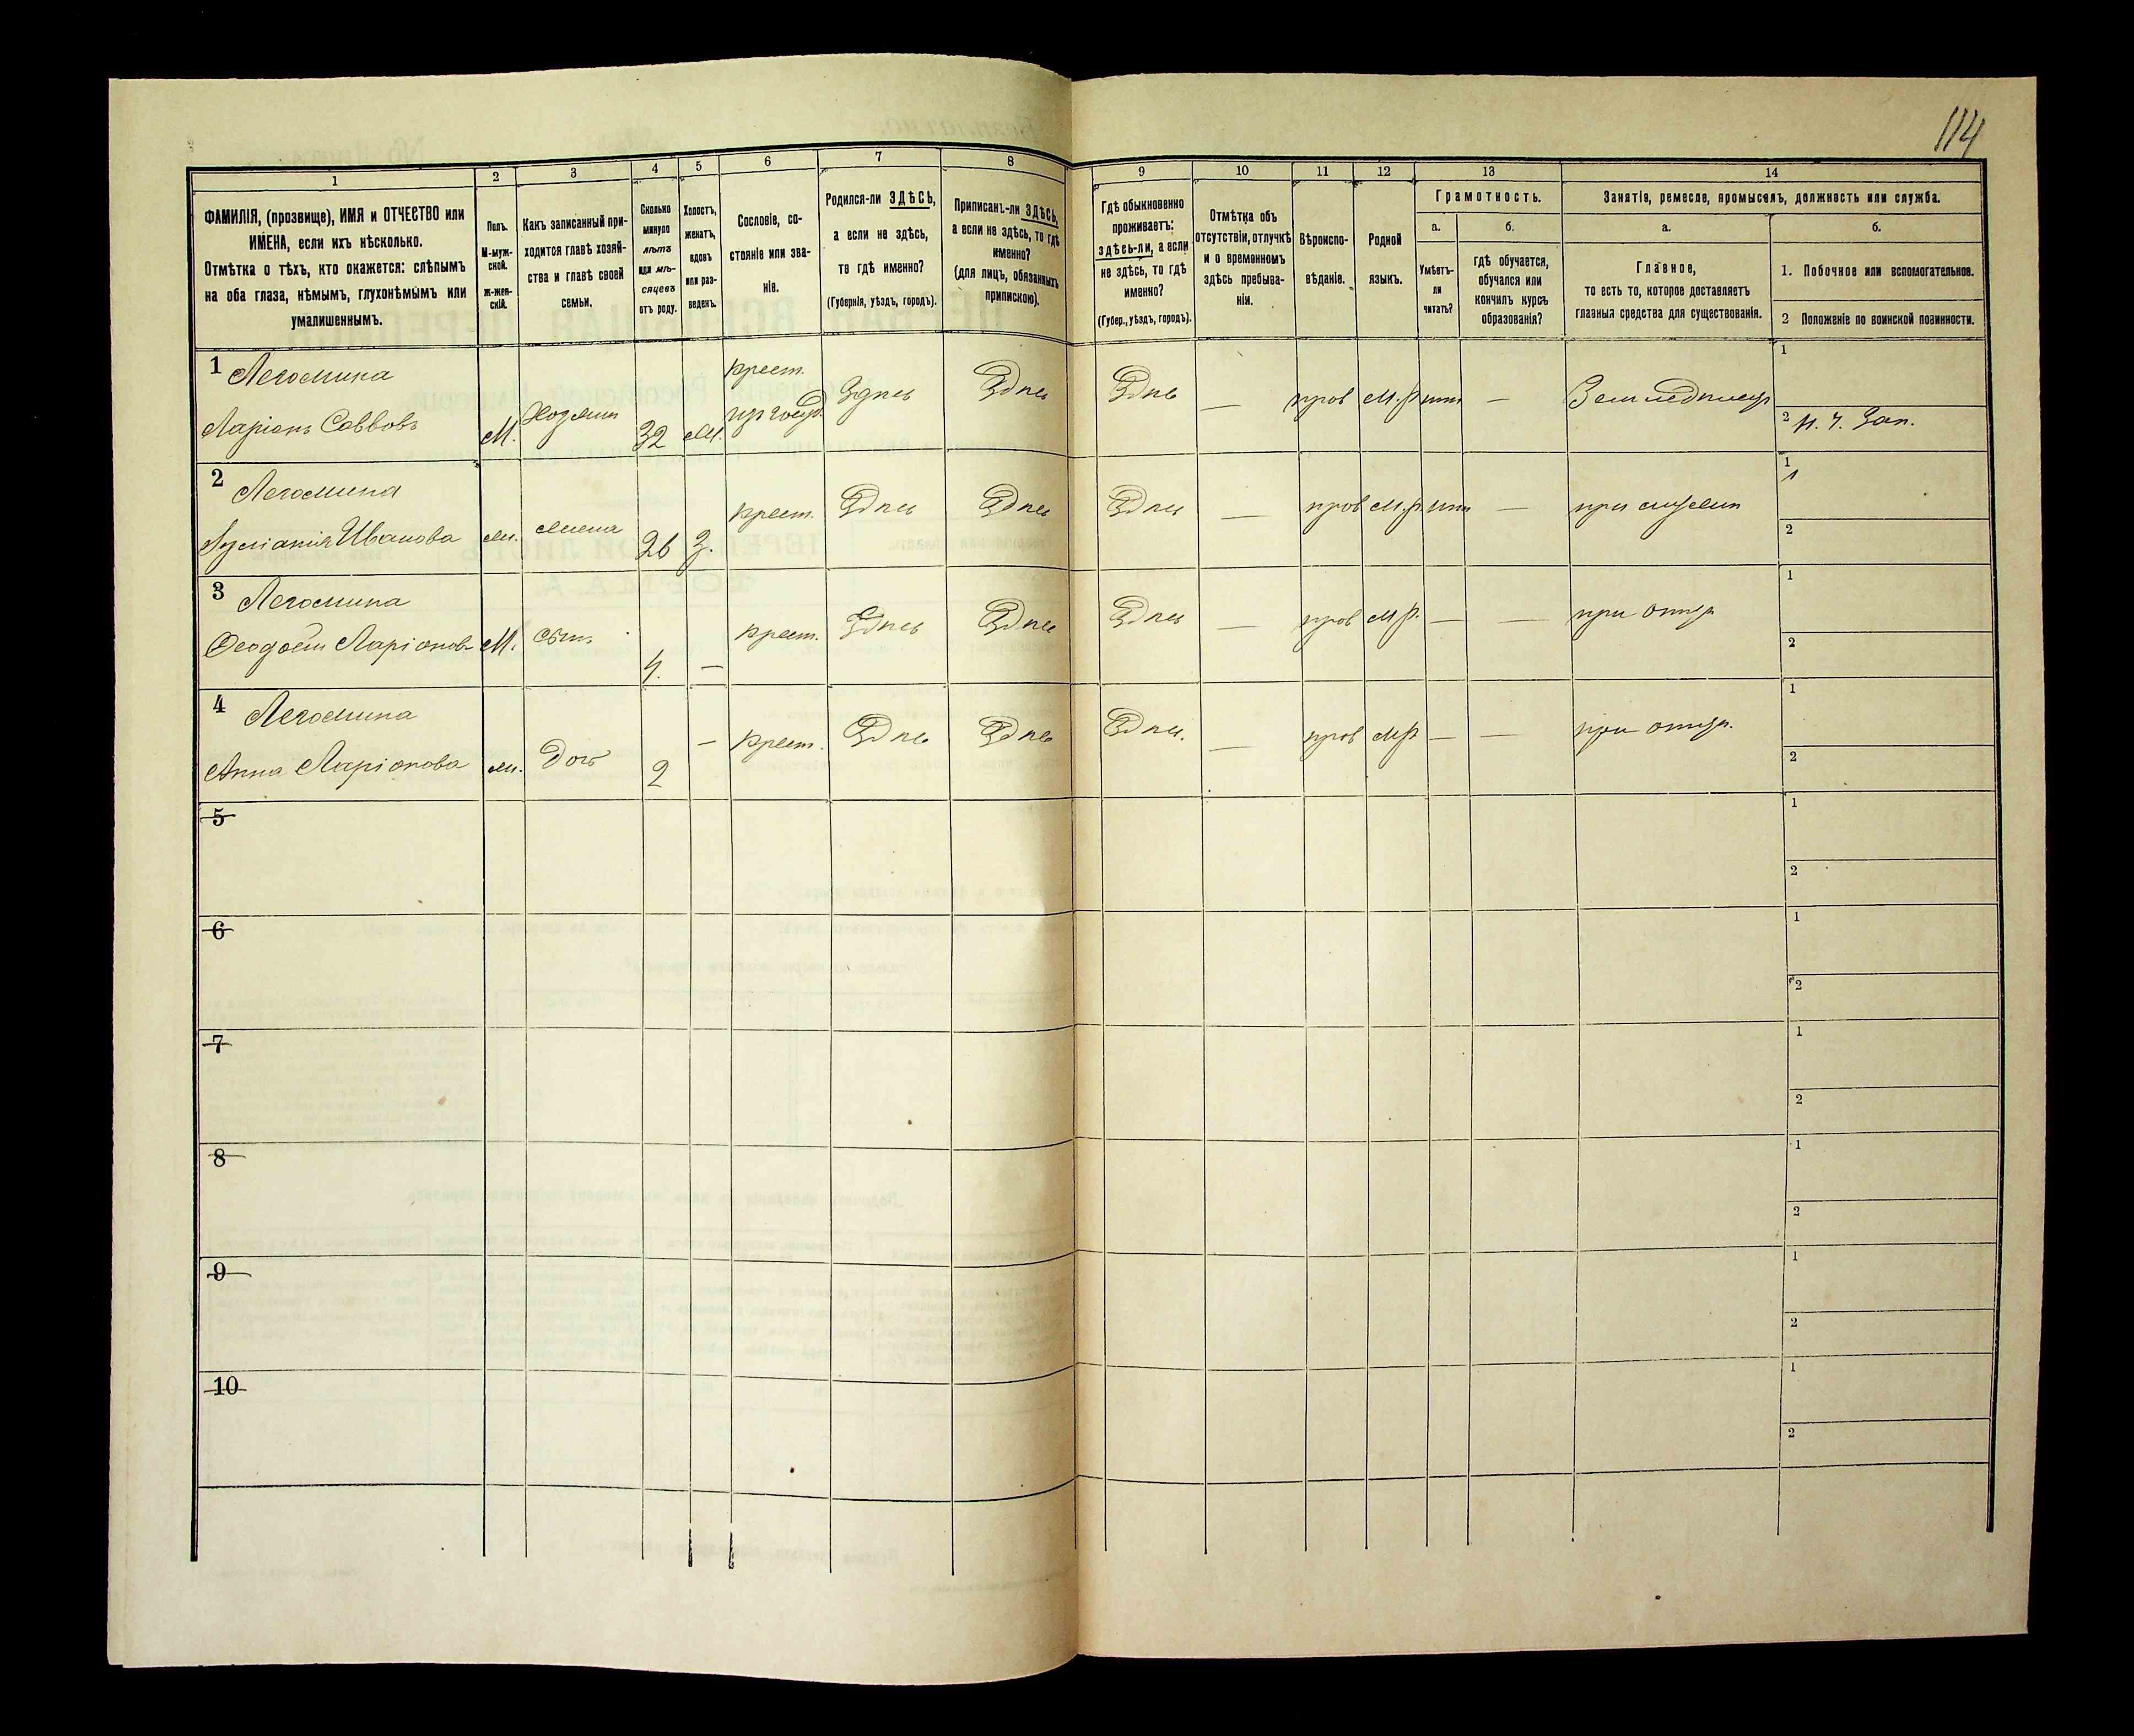 114
1 2 3 4 5 6 7 8 9 10 11 12 13 14
ФАМИЛІЯ, (прозвище), ИМЯ и ОТЧЕСТВО или
ИМЕНА, если ихъ нѣсколько.
Отмѣтка о тѣхъ, кто окажется: слѣпымъ
на оба глаза, нѣмымъ, глухонѣмымъ или
умалишеннымъ.
Полъ.
М-муж-
ской.
Ж-жен-
скій.
Какъ записанный при-
ходится главѣ хозяй-
ства и главѣ своей
семьи.
Сколько
минуло
лѣтъ
или мѣ-
сяцевъ
отъ роду.
Холостъ,
женатъ,
вдовъ
или раз-
веденъ.
Сословіе, со-
стояніе или зва-
ніе.
Родился-ли ЗДѢСЬ,
а если не здѣсь,
то гдѣ именно?
(Губернія, уѣздъ, городъ).
Приписанъ-ли ЗДѢСЬ,
а если не здѣсь, то гдѣ
именно?
(для лицъ, обязанныхъ
припискою).
Гдѣ обыкновенно
проживаетъ:
здѣсь-ли, а если
не здѣсь, то гдѣ
именно?
(Губер., уѣздъ, городъ).
Отмѣтка объ
отсутствіи, отлучкѣ
и о временномъ
здѣсь пребыва-
ніи.
Вѣроиспо-
вѣданіе.
Родной
языкъ.
Грамотность.
а.
Умѣетъ-
ли
читать?
б.
гдѣ обучается,
обучался или
кончилъ курсъ
образованія?
Занятіе, ремесло, промыселъ, должность или служба.
а.
Главное,
то есть то, которое доставляетъ
главныя средства для существованія.
б.
1. Побочное или вспомогательное.
2 Положеніе по воинской повинности.
1
Ларіонъ Саввовъ
М. Хозяинъ 32 крест. Здѣсь Здѣсь Здѣсь — прав М.р — 1
2
2
Ивановa 26 З. крест. Здѣсь Здѣсь Здѣсь — прав М.р — 1
2
3
Ѳеодосій Ларіоновъ М. сынъ 4. — крест. Здѣсь Здѣсь Здѣсь — прав М.р. — — при отцѣ 1
2
4
Анна Ларіонова Доч 2 — крест. Здѣсь Здѣсь Здѣсь. — прав М.р — — при отцѣ. 1
2
5 1
2
6 1
2
7 1
2
8 1
2
9 1
2
10 1
2